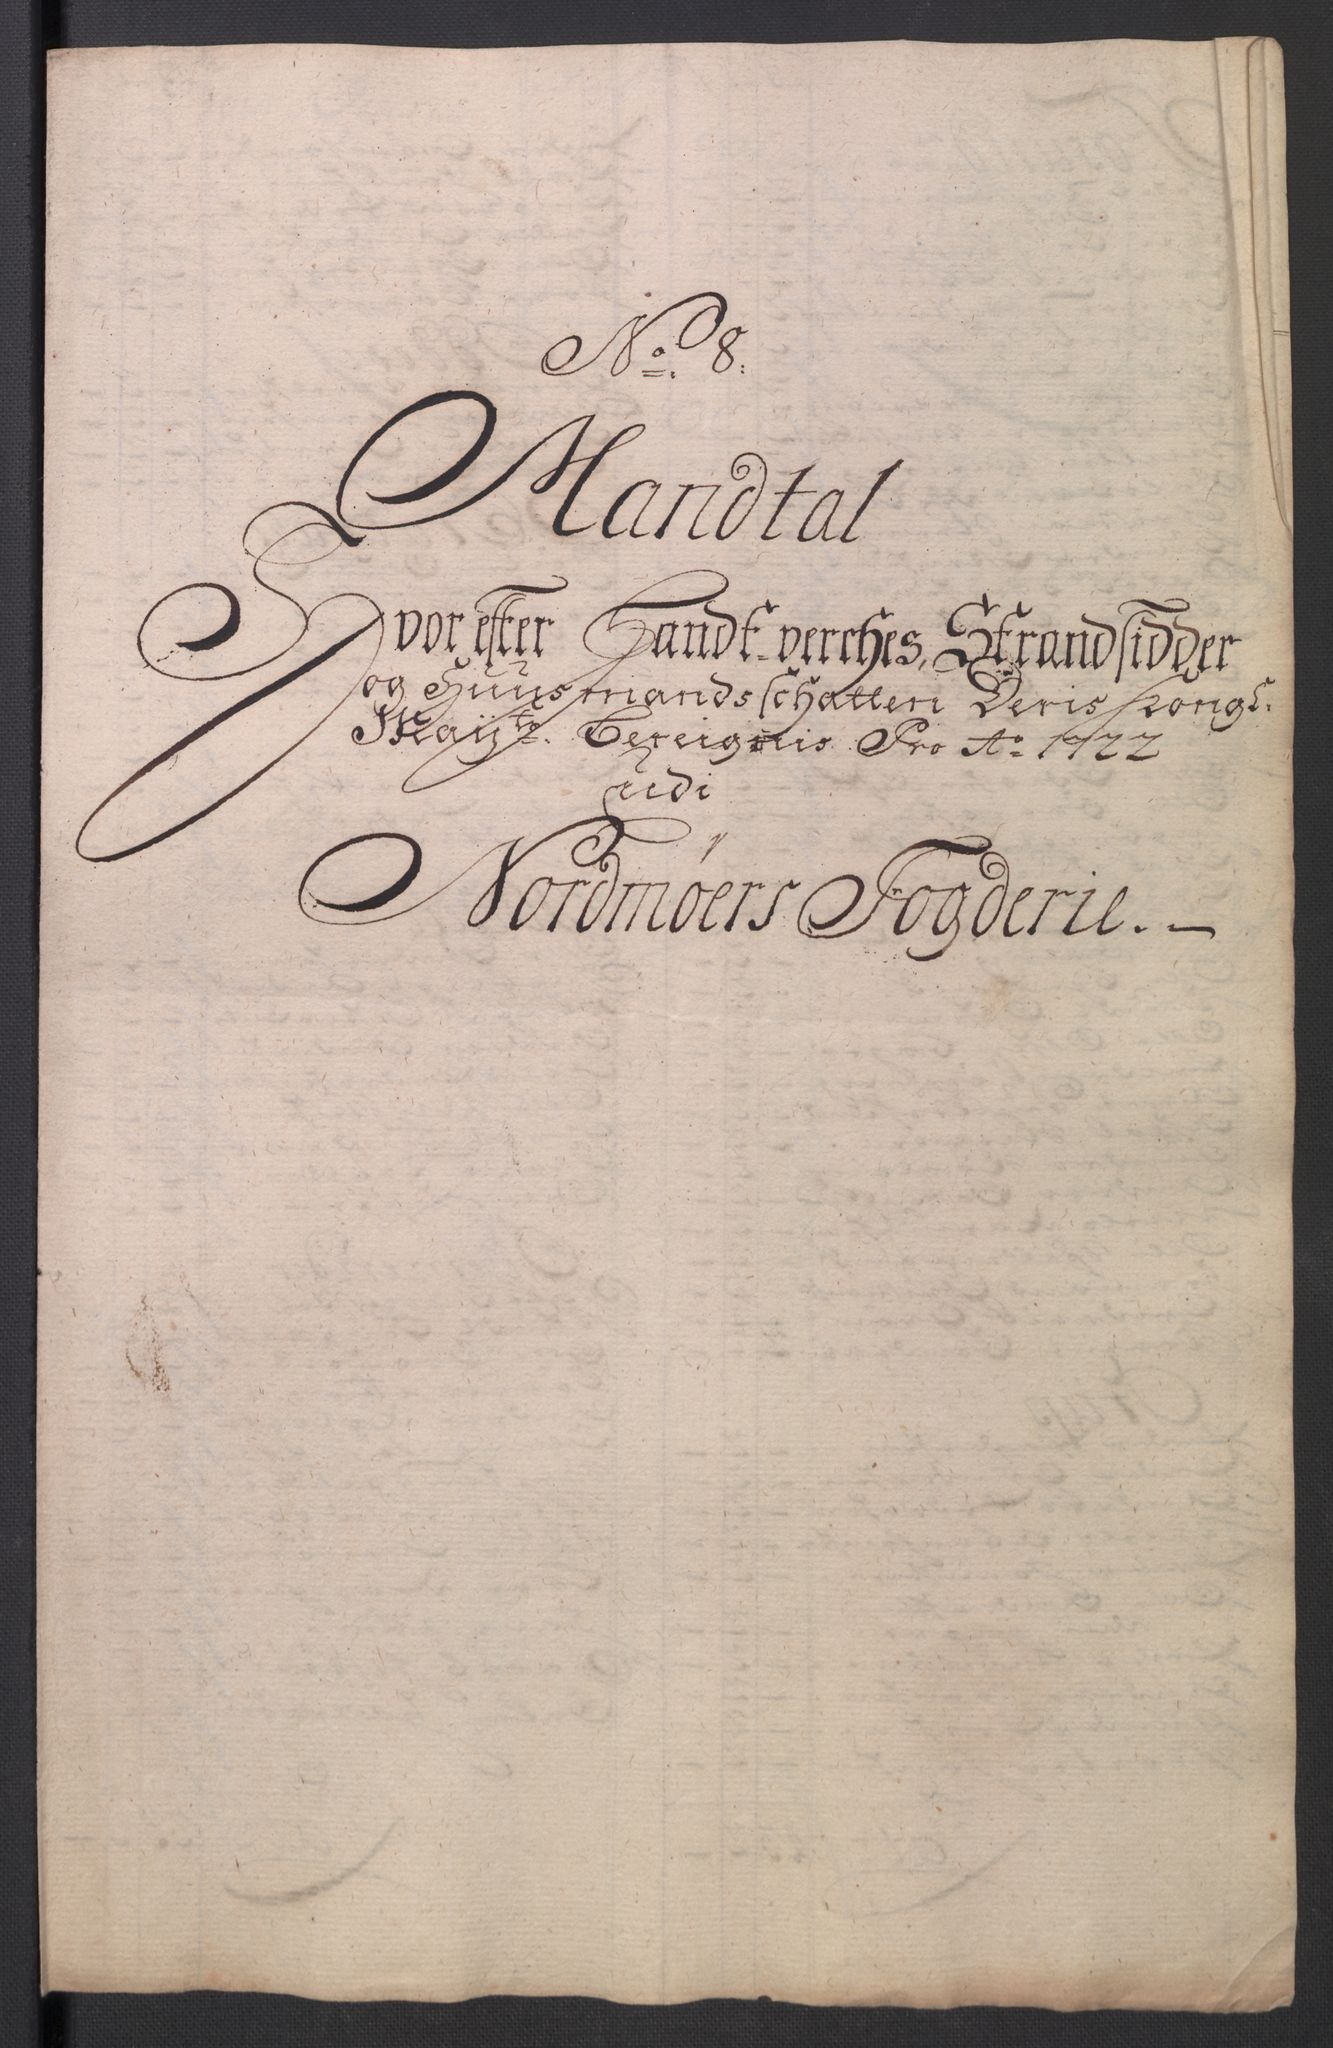 No. 8.
Mandtal
Hvor efter Handt-verches, Strandsidder
og Huusmandsschatten Deris Kongl.
Mayts. Bereignis Pro Ao 1722
udi
Nordmøers Fogderie. –